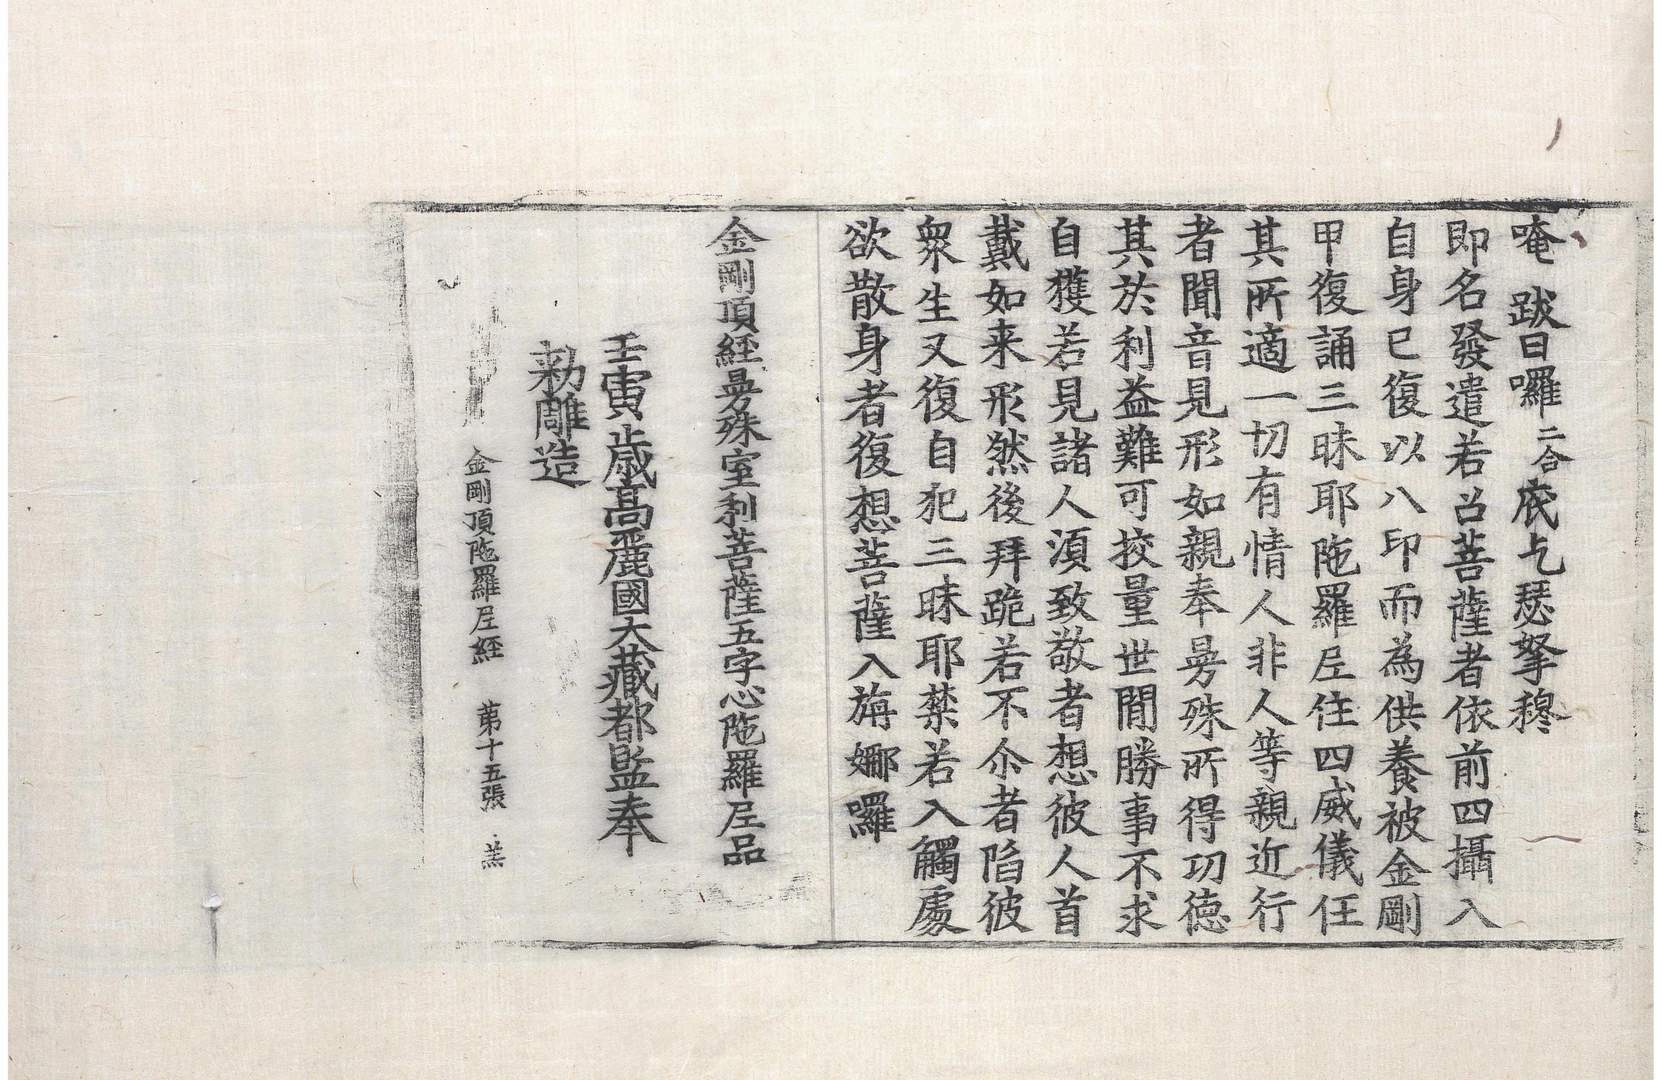 唵 跋日囉二合底乞瑟拏穆
即名發遣若召菩薩者依前四攝入
自身已復以八印而為供養被金剛
甲復誦三昧耶陁羅尼住四威儀任
其所適一切有情人非人等親近行
者聞音見形如親奉曼殊所得功德
其於利益難可挍量世間勝事不求
自獲若見諸人須致敬者想彼人首
戴如来形然後拜跪若不尒者陷彼
衆生又復自犯三昧耶禁若入觸處
欲散身者復想菩薩入旃娜囉
金剛頂經曼殊室利菩薩五字心陁羅尼品
壬寅歳高麗國大藏都監奉
勑雕造
金剛頂陁羅尼經 第十五張 羔